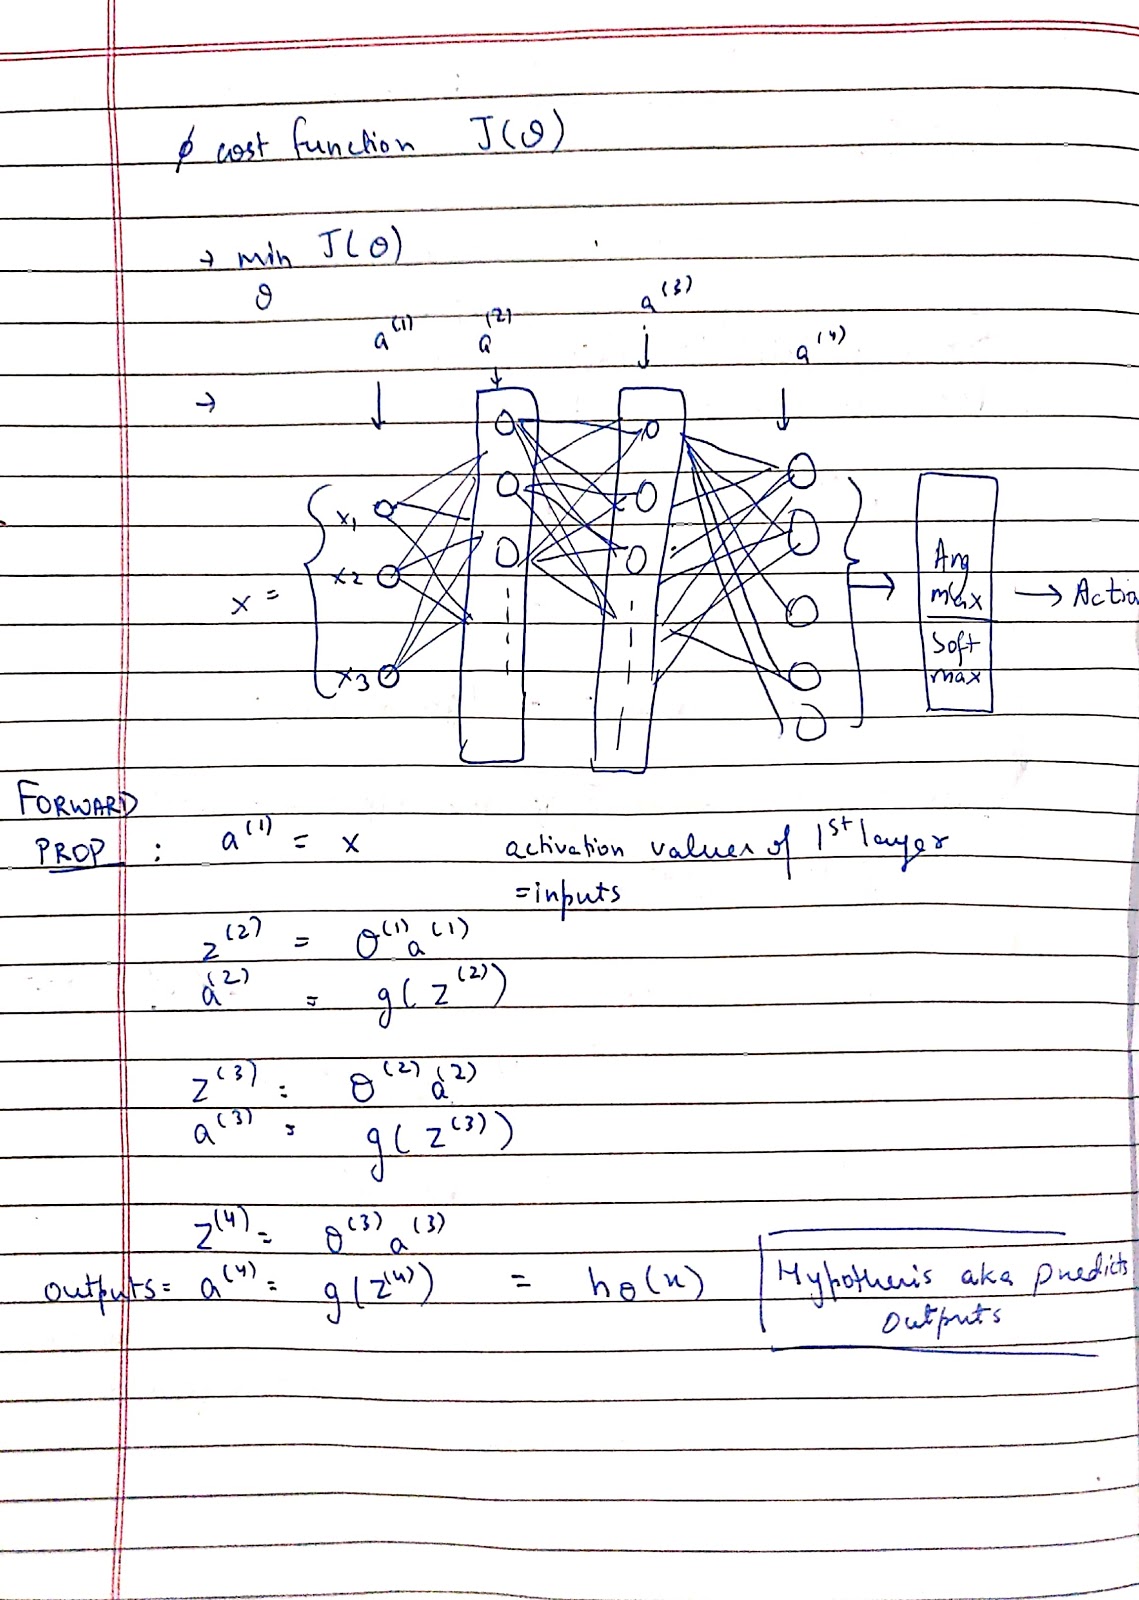 cost function J(θ)
→ min J(θ)
θ
a⁽¹⁾ a⁽²⁾ a⁽³⁾ a⁽⁴⁾
→
x =
x1
x2
x3
Arg
max
Soft
max
→ Actio
FORWARD
PROP : a⁽¹⁾ = x activation values of 1st layer
=inputs
z⁽²⁾ = θ⁽¹⁾a⁽¹⁾
a⁽²⁾ = g(z⁽²⁾)
z⁽³⁾ = θ⁽²⁾a⁽²⁾
a⁽³⁾ = g(z⁽³⁾)
z⁽⁴⁾ = θ⁽³⁾a⁽³⁾
outputs = a⁽⁴⁾ = g(z⁽⁴⁾) = hθ(x) Hypothesis aka predicts
Outputs